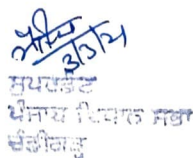 3/3/21
ਸੁਪਰਡੰਟ
ਪੰਜਾਬ ਵਿਧਾਨ ਸਭਾ
ਚੰਡੀਗੜ੍ਹ